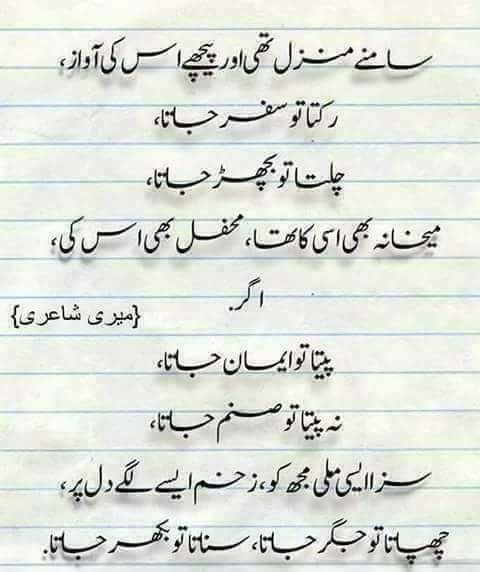 سامنے منزل تھی اور پیچھے اس کی آواز،
رکتا تو سفر جاتا،
چلتا تو بچھڑ جاتا،
میخانہ بھی اسی کا تھا، محفل بھی اس کی،
اگر.
{میری شاعری}
پیتا تو ایمان جاتا،
نہ پیتا تو صنم جاتا،
سزا ایسی ملی مجھ کو، زخم ایسے لگے دل پر،
چھپاتا تو جگر جاتا، سناتا تو بکھر جاتا.